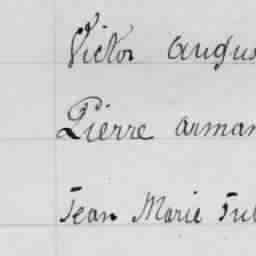 Victor Augus
Pierre Arman
Jean Marie Jul